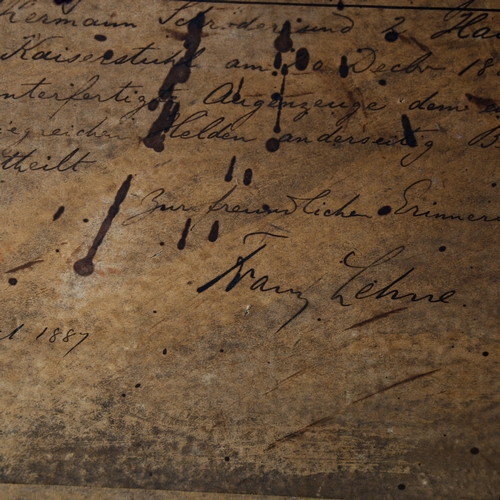 Hermann Schröder sind 2 Hau
Kaiserstuhl am 20 Decbr 18
unterfertigt Augenzeuge dem
siegreichen Helden anderseitig B
theilt
Zur freundlichen Erinner
Franz Lehne.
1887